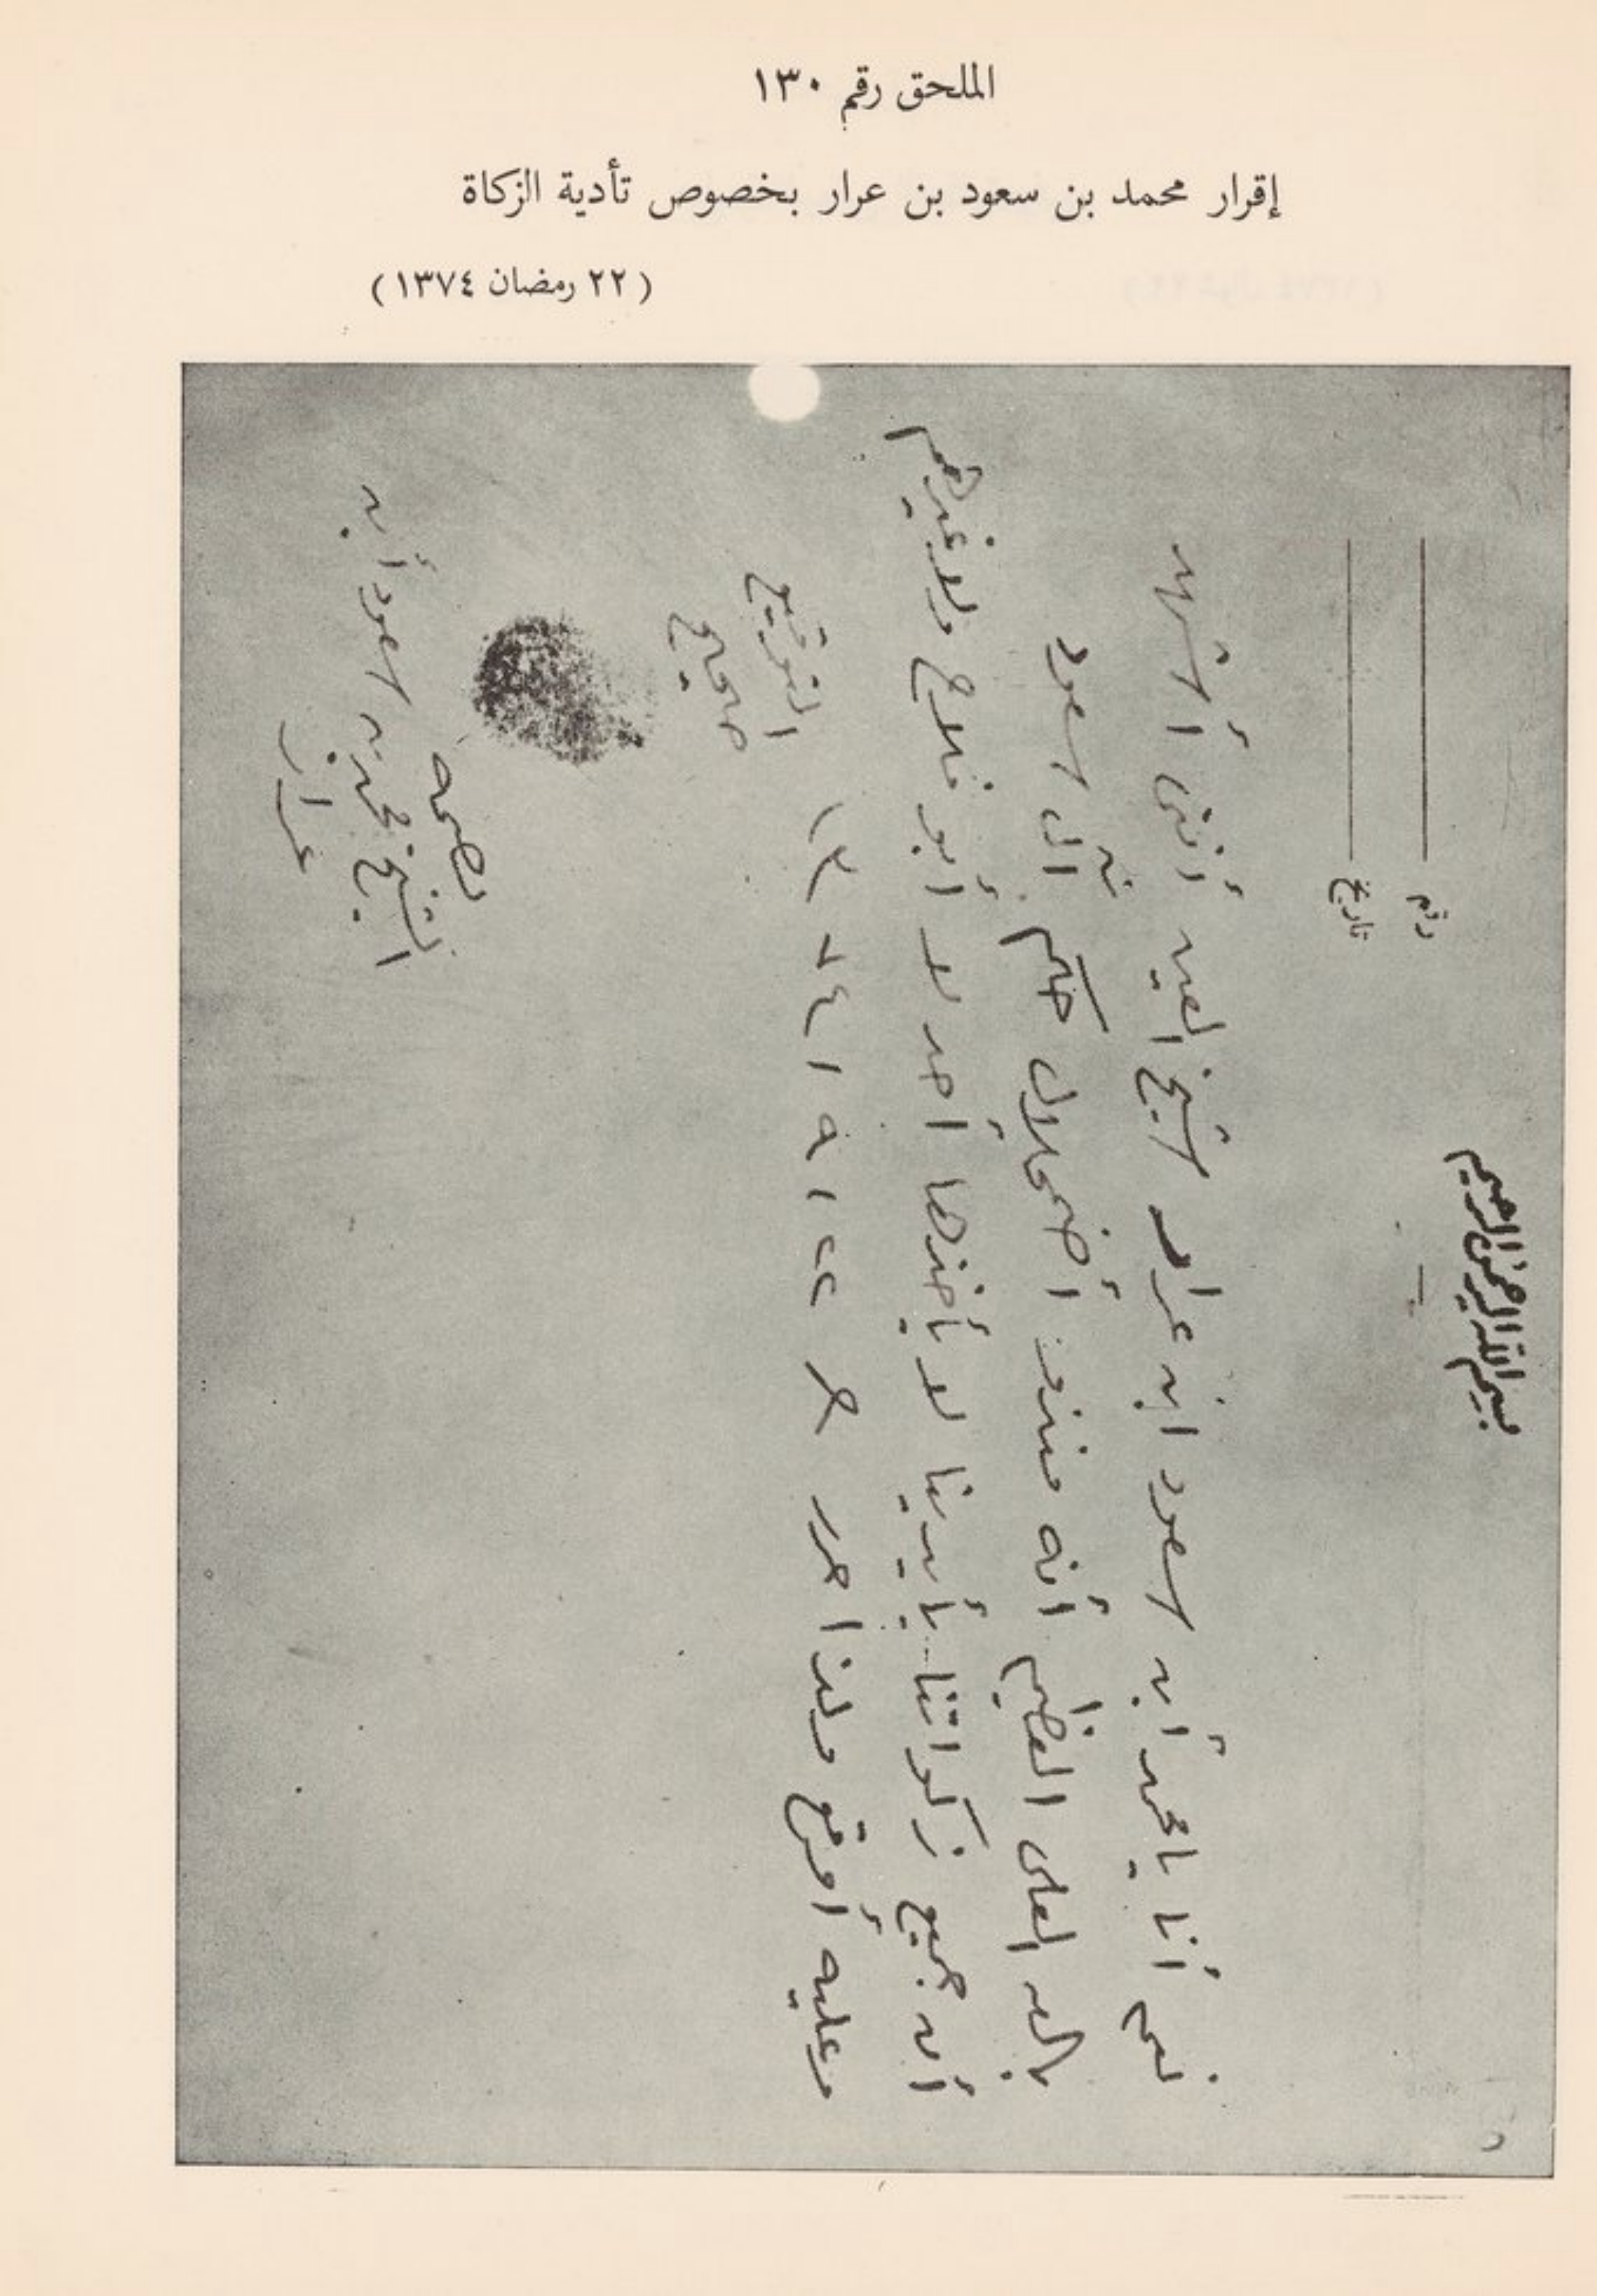 الملحق رقم ١٣٠
إقرار محمد بن سعود بن عرار بخصوص تأدية الزكاة
(٢٢ رمضان ١٣٧٤)
بسم الله الرحمن الرحيم
رقم
تاريخ
نعم أنا يا محمد أبن سعود ابن عرار شيخ العين أنني أشهد
بالله العلى العظيم أنه منذ أضمحلال حكم آل سعود
أن جميع زكواتنا بأيدينا لا يأخذها أحد لا أبو فلاح ولا غيرهم
وعليه أوقع ولذا حرر ٢٢ / ٩ / ١٣٧٤
التوقيع
صحيح
بصمه
الشيخ محمد بن سعود أبن
عرار